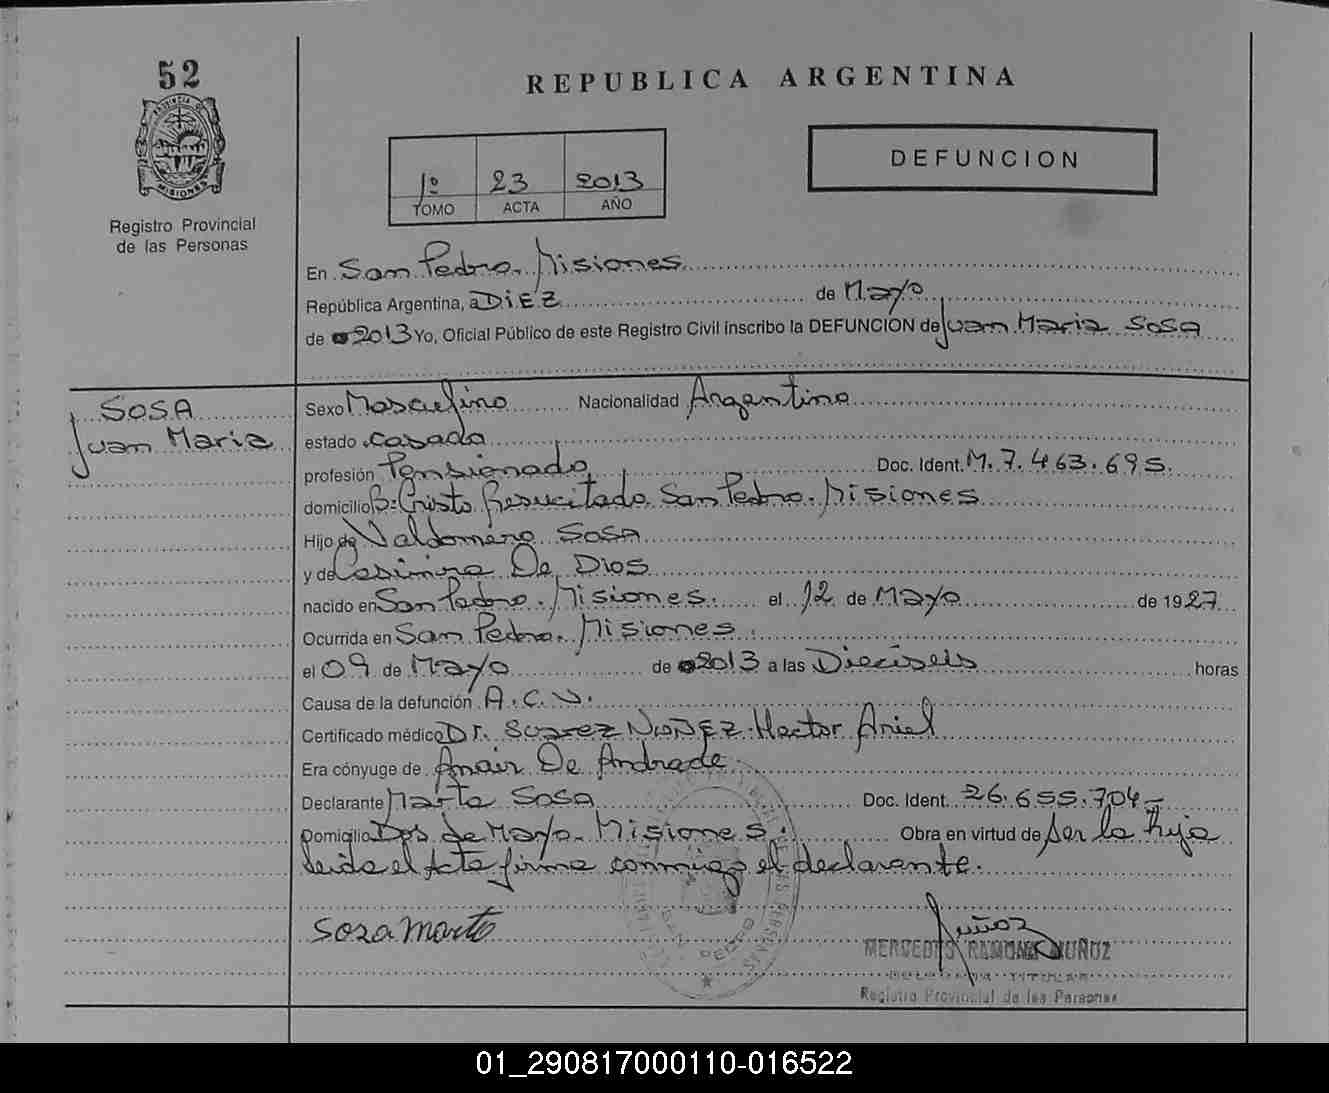 52
PROVINCIA DE
MISIONES
Registro Provincial
de las Personas
REPUBLICA ARGENTINA
1º 23 2013
TOMO ACTA AÑO
DEFUNCION
En San Pedro. Misiones
República Argentina, a DiEZ de Mayo
de 2013 Yo, Oficial Público de este Registro Civil inscribo la DEFUNCION de Juan Maria SOSA
SOSA
Juan Maria
Sexo Masculino Nacionalidad Argentino
estado Casado
profesión Pensionado Doc. Ident. M. 7.463.695.
domicilio B: Cristo Resucitado San Pedro. Misiones
Hijo de Valdomero SOSA
y de Casimira De Dios
nacido en San Pedro. Misiones. el 12 de Mayo de 1927
Ocurrida en San Pedro. Misiones.
el 09 de Mayo de 2013 a las Dieciseis horas
Causa de la defunción A.C.V.
Certificado médico Dr. Suarez NuñEZ. Hector Ariel
Era cónyuge de Anair De Andrade.
Declarante Marta SOSA Doc. Ident. 26.655.704-
Domicilio Dos de Mayo. Misiones. Obra en virtud de Ser la hija
leida el Acta firma conmigo el declarante.
Sosa Marta
Muñoz
MERCEDES RAMONA MUÑOZ
DELEGADA TITULAR
Registro Provincial de las Personas
SAN PEDRO
01_290817000110-016522